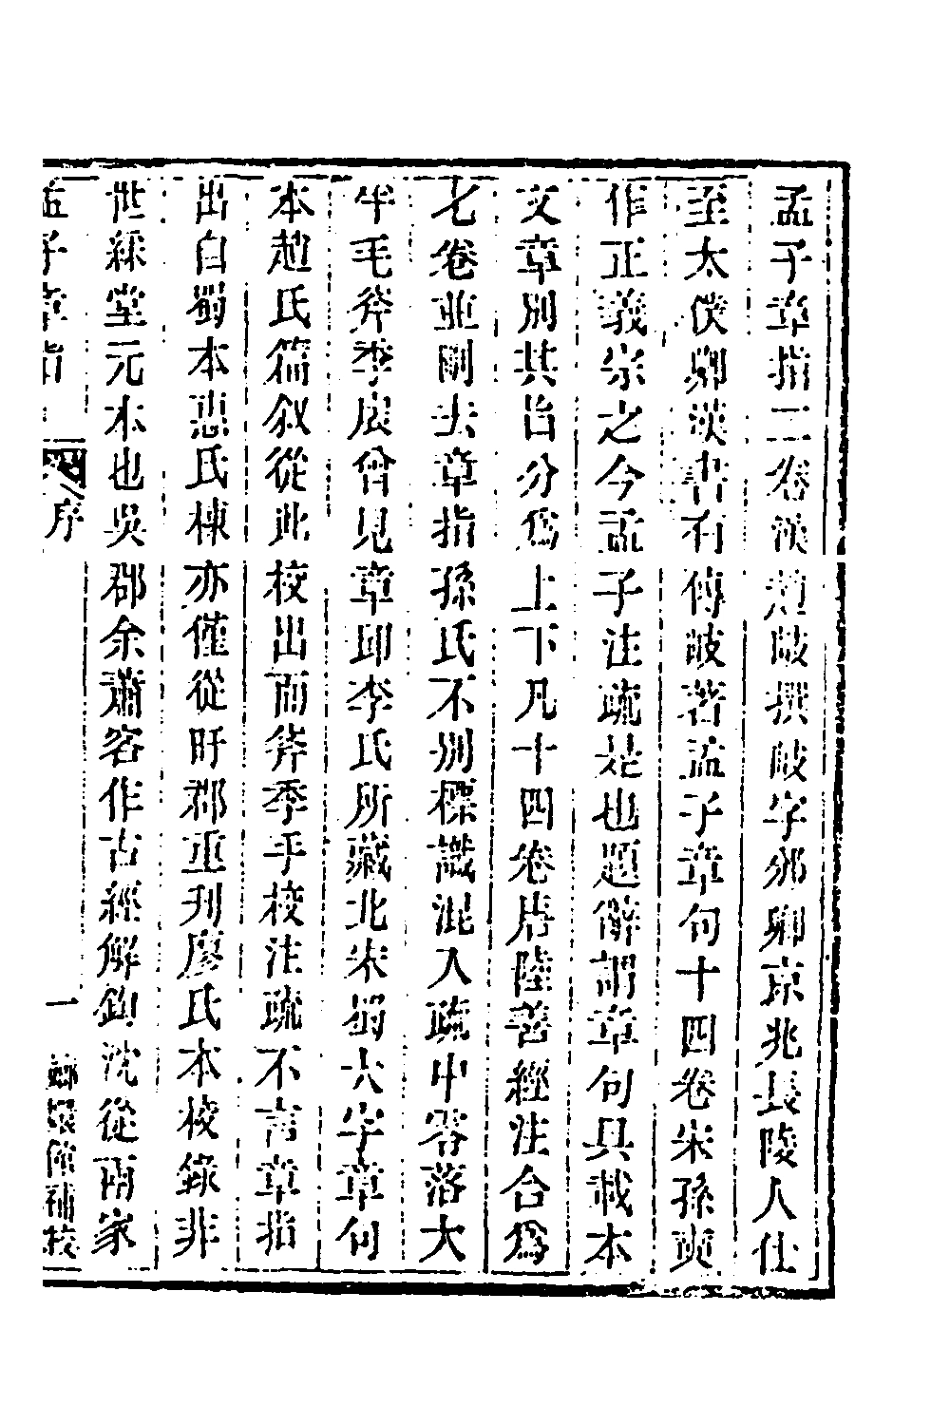 孟子章指二卷漢趙岐撰岐字邠卿京兆長陵人仕
至太僕卿漢書有傳岐著孟子章句十四卷宋孫奭
作正義宗之今孟子注疏是也題辭謂章句具載本
文章別其旨分為上下凡十四卷唐陸善經注合為
七卷並刪去章指孫氏不別標識混入疏中零落大
半毛斧季扆曾見章邱李氏所藏北宋蜀大字章句
本趙氏篇叙從此校出而斧季手校注疏不言章指
出自蜀本惠氏棟亦僅從盱郡重刊廖氏本校錄非
世綵堂元本也吳郡余蕭客作古經解鉤沈從兩家
孟子章指
序
一
嫏嬛館補校